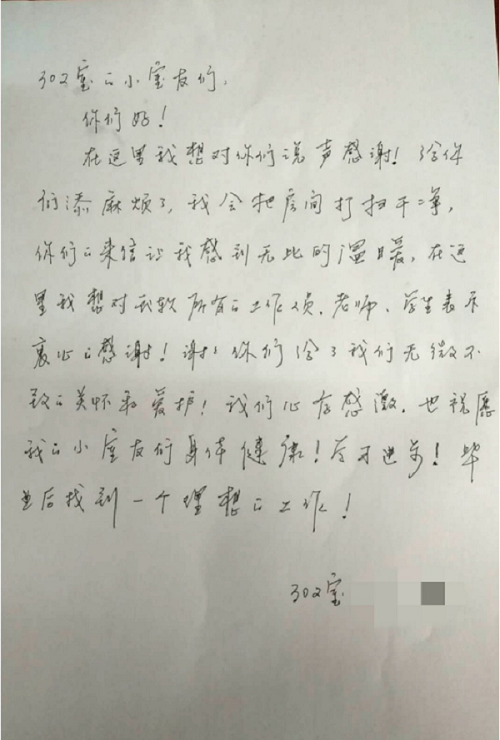 302室的小室友们,
你们好!
在这里我想对你们说声感谢!给你
们添麻烦了,我会把房间打扫干净,
你们的来信让我感到无比的温暖,在这
里我想对我软所有的工作员、老师、学生表示
衷心的感谢!谢谢你们给了我们无微不
致的关怀和爱护!我们心存感激,也祝愿
我的小室友们身体健康!学习进步!毕
业后找到一个理想的工作!
302室